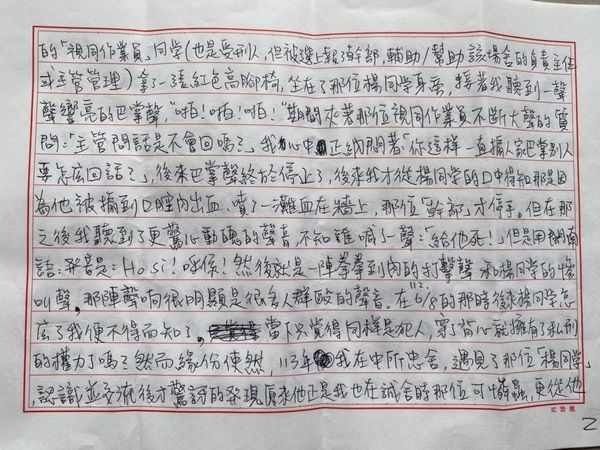 的「視同作業員」同學(也是受刑人,但被選上報幹部,輔助/幫助該場舍的負責主任
或主管管理)拿了一張紅色高腳椅,坐在了那位楊同學身旁,接著我聽到一聲
聲響亮的巴掌聲,"啪!啪!啪!"期間夾著那位視同作業員不斷大聲的質
問:「主管問話是不會回嗎?」我心中正納悶著"你這樣一直摑人家巴掌別人
要怎麼回話?」,後來巴掌聲終於停止了,後來我才從楊同學的口中得知那是因
為他被摑到口腔內出血,噴了一灘血在牆上,那位「幹部」才停手。但在那
之後我聽到了更驚心動魄的聲音,不知誰喊了一聲:「給他死!」但是用閩南
語:發音是:Ho si!呼係!然後就是一陣拳拳到肉的打擊聲和楊同學的慘
叫聲,那陣聲响很明顯是很多人群毆的聲音。在112.6/8的那晚後來楊同學怎
麼了我便不得而知了,當下只覺得同樣是犯人,穿了背心就擁有了私刑
的權力了嗎?然而緣份使然,113年我在中所忠舍,遇見了那位「楊同學」
,認識並交流後才驚訝的發現原來他正是我也在誠舍時那位可憐蟲,更從他
2